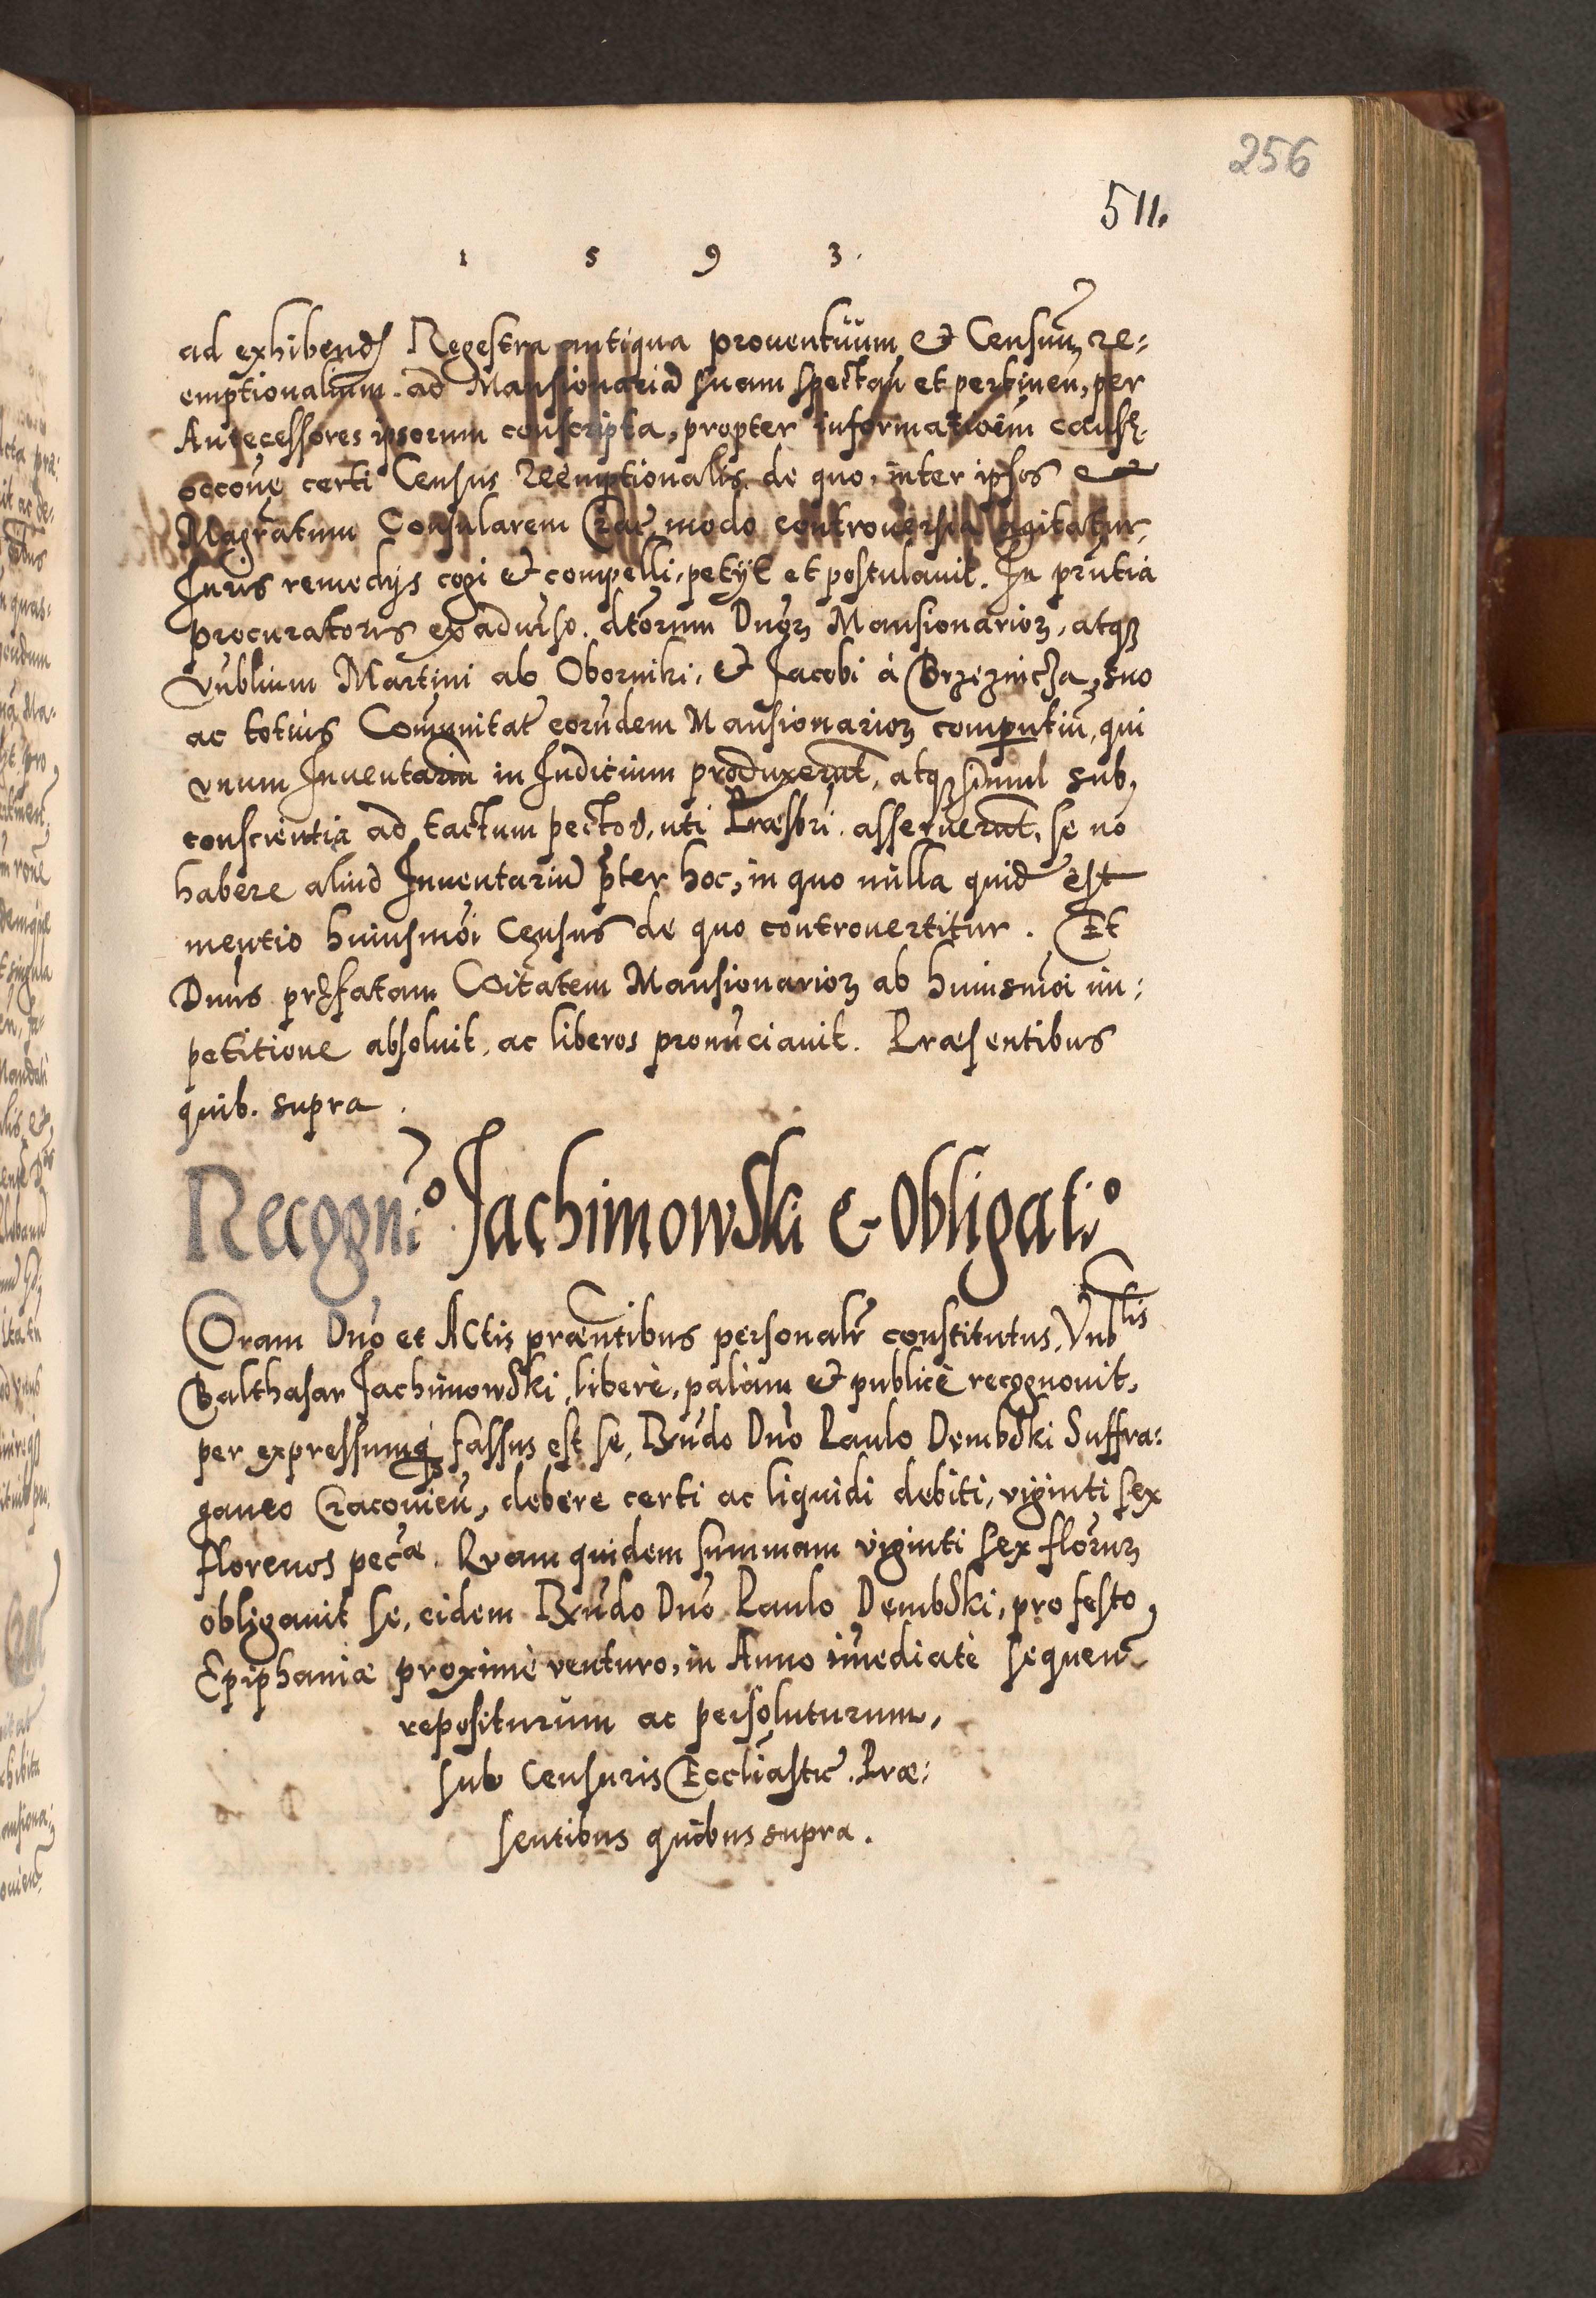 256
511.
1 5 9 3.
ad exhibend Regestra antiqua prouentuum & Censuũ re=
emptionalium. ad Mansionariã suam spectañ et pertineñ, per
Antecessores ipsorum conscripta, propter informatioẽm causę.
occõne certi Census reemptionalis de quo, inter ipsos &
Magr̃atum Consularem Crac̃ modo controuersia agitatur,
Juris remedijs cogi & compelli, petijt et postulauit. In pr̃ntia
procuratoris ex aduerso. dtõrum Dnõrꝫ Mansionariorꝫ, atqꝫ
Vnblium Martini ab Oborniki, & Jacobi à Brzeznicza, suo
ac totius Com̃unitat̃ eorũdem Mansionariorꝫ comparẽntiũ, qui
vnum Inuentariũ in Judicium produxerunt, atqꝫ simul sub,
conscientia ad tactum pectoꝝ, uti Præsbr̃i. asseruerunt, se nõ
habere aliud Inuentariũ p̃ter hoc, in quo nulla quid̃ est
mentio huiusmõi Census de quo controuertitur. Et
Dnũs pręfatam Cõitatem Mansionariorꝫ ab huiusmõi im=
petitione absoluit, ac liberos pronũciauit. Præsentibus
quib. supra.
Recogniõ Jachimowski & Obligatio
Coram Dnõ et Actis præntibus personalr̃ constitutus, Vnblis
Balthasar Jachimowski, liberè, palàm & publicè recognouit,
per expressumqꝫ fassus est se, Rñdo Dnõ Paulo Dembski Suffra=
ganeo Cracouieñ, debere certi ac liquidi debiti, viginti sex
florenos pecæ. Quam quidem summam viginti sex florũrꝫ
obligauit se, eidem Rñdo Dnõ Paulo Dembski, pro festo
Epiphaniæ proximè venturo, in Anno im̃ediatè sequeñ
repositurum ac persoluturum,
sub Censuris Eccliãstic̃. Præ=
sentibus quibus supra.